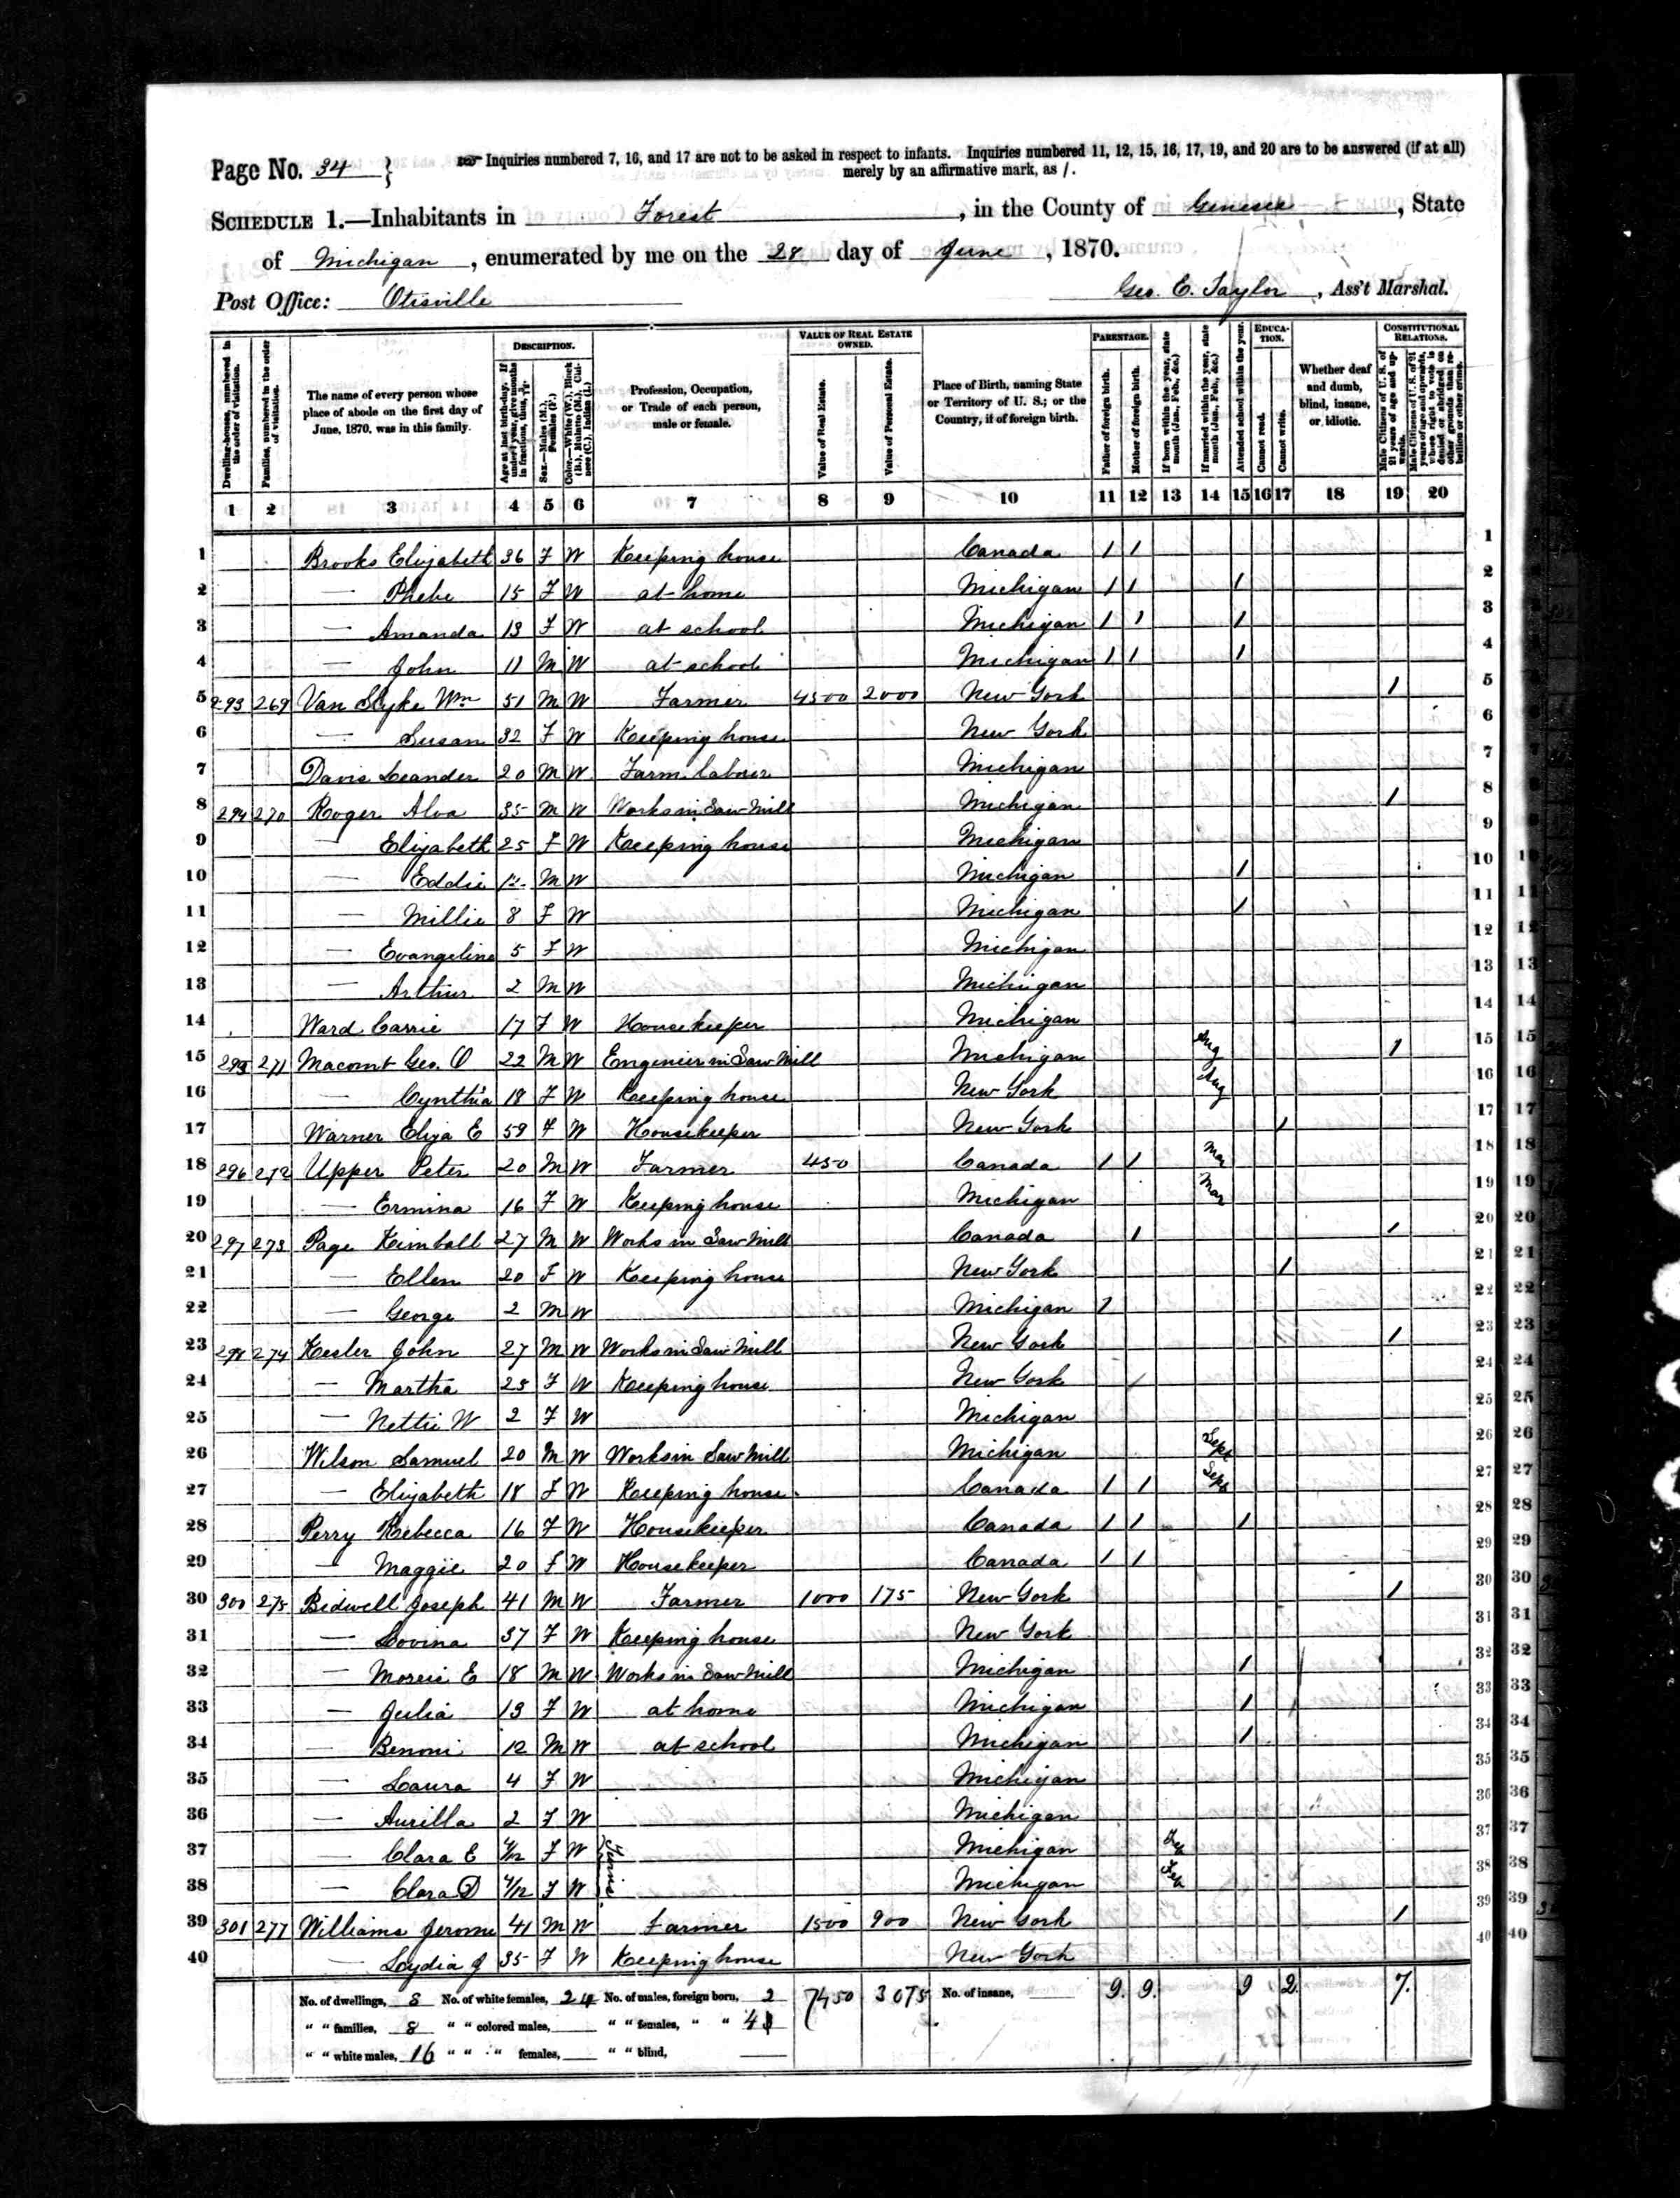 Page No. 34 } Inquiries numbered 7, 16, and 17 are not to be asked in respect to infants. Inquiries numbered 11, 12, 15, 16, 17, 19, and 20 are to be answered (if at all)
merely by an affirmative mark, as /.
SCHEDULE 1.—Inhabitants in Forest, in the County of Genesee, State
of Michigan, enumerated by me on the 28 day of June, 1870.
Post Office: Otisville Geo. C. Taylor, Ass't Marshal.
Dwelling-houses, numbered in the order of visitation.
Families, numbered in the order of visitation.
The name of every person whose place of abode on the first day of June, 1870, was in this family.
DESCRIPTION.
Age at last birth-day. If under 1 year, give months in fractions, thus, 3/12.
Sex.—Males (M.), Females (F.)
Color.—White (W.), Black (B.), Mulatto (M.), Chinese (C.), Indian (I.)
Profession, Occupation, or Trade of each person, male or female.
VALUE OF REAL ESTATE OWNED.
Value of Real Estate.
Value of Personal Estate.
Place of Birth, naming State or Territory of U. S.; or the Country, if of foreign birth.
PARENTAGE.
Father of foreign birth.
Mother of foreign birth.
If born within the year, state month (Jan., Feb., &c.)
If married within the year, state month (Jan., Feb., &c.)
Attended school within the year.
EDUCATION.
Cannot read.
Cannot write.
Whether deaf and dumb, blind, insane, or idiotic.
CONSTITUTIONAL RELATIONS.
Male Citizens of U. S. of 21 years of age and upwards.
Male Citizens of U. S. of 21 years of age and upwards, whose right to vote is denied or abridged on other grounds than rebellion or other crime.
1 2 3 4 5 6 7 8 9 10 11 12 13 14 15 16 17 18 19 20
1 Brooks Elizabeth 36 F W Keeping house Canada 1 1 1
2 — Phebe 15 F W at home Michigan 1 1 1 2
3 — Amanda 13 F W at school Michigan 1 1 1 3
4 — John 11 M W at school Michigan 1 1 1 4
5 293 269 Van Slyke Wm 51 M W Farmer 4500 2000 New York 1 5
6 — Susan 32 F W Keeping house New York 6
7 Davis Leander 20 M W Farm labour Michigan 7
8 294 270 Roger Alva 35 M W Works in Saw Mill Michigan 1 8
9 — Elizabeth 25 F W Keeping house Michigan 9
10 — Eddie 12 M W Michigan 1 10 10
11 — Millie 8 F W Michigan 1 11 11
12 — Evangeline 5 F W Michigan 12 12
13 — Arthur 2 M W Michigan 13 13
14 Ward Carrie 17 F W Housekeeper Michigan 14 14
15 295 271 Macomt Geo. O 22 M W Engenier in Saw Mill Michigan Aug 1 15 15
16 — Cynthia 18 F W Keeping house New York Aug 16 16
17 Warner Eliza E 59 F W Housekeeper New York 1 17 17
18 296 272 Upper Peter 20 M W Farmer 450 Canada 1 1 Mar 18 18
19 — Ermina 16 F W Keeping house Michigan Mar 19 19
20 297 273 Page Kimball 27 M W Works in Saw Mill Canada 1 1 20 20
21 — Ellen 20 F W Keeping house New York 1 21 21
22 — George 2 M W Michigan 1 22 22
23 298 274 Kesler John 27 M W Works in Saw Mill New York 1 23 23
24 — Martha 25 F W Keeping house New York / 24 24
25 — Nettie W 2 F W Michigan 25 25
26 Wilson Samuel 20 M W Works in Saw Mill Michigan Sept 26 26
27 — Elizabeth 18 F W Keeping house Canada 1 1 Sept 27 27
28 Perry Rebecca 16 F W Housekeeper Canada 1 1 1 28 28
29 — Maggie 20 F W Housekeeper Canada 1 1 29 29
30 300 275 Bidwell Joseph 41 M W Farmer 1000 175 New York 1 30 30
31 — Lovina 37 F W Keeping house New York 31 31
32 — Morris E 18 M W Works in Saw Mill Michigan 1 32 32
33 — Julia 13 F W at home Michigan 1 33 33
34 — Benoni 12 M W at school Michigan 1 34 34
35 — Laura 4 F W Michigan 35 35
36 — Aurilla 2 F W Michigan 36 36
37 — Clara E 4/12 F W Michigan Feb 37 37
38 — Clara D 4/12 F W Michigan Feb 38 38
39 301 277 Williams Jerome 41 M W Farmer 1500 900 New York 1 39 39
40 — Lydia J 35 F W Keeping house New York 40 40
No. of dwellings, 8 No. of white females, 24 No. of males, foreign born, 2 7450 3075 No. of insane, 9. 9. 9 2 7.
" " families, 8 " " colored males, " " females, " " 4
" " white males, 16 " " " females, " " blind,